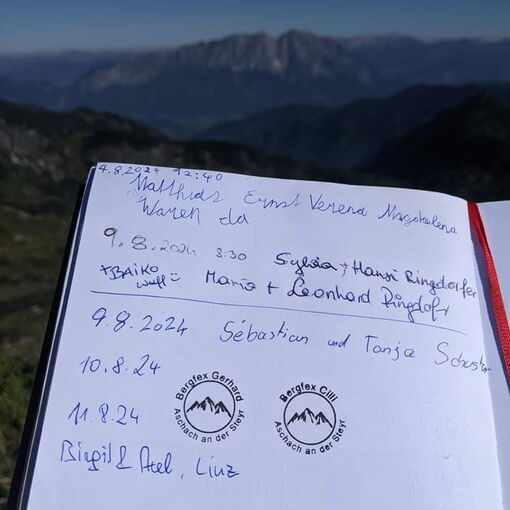 4.8.2024 12:40
Matthias Ernst Verena Magdalena
Waren da
9.8.2024 8:30 Sylvia + Hansi Ringdorfer
+BAIKO Maria + Leonhard Ringdofr
wuff
9.8.2024 Sebastian und Tanja Schuster
10.8.24
Bergfex Gerhard
Aschach an der Steyr
Bergfex Cilli
Aschach an der Steyr
11.8.24
Birgit & Axel, Linz